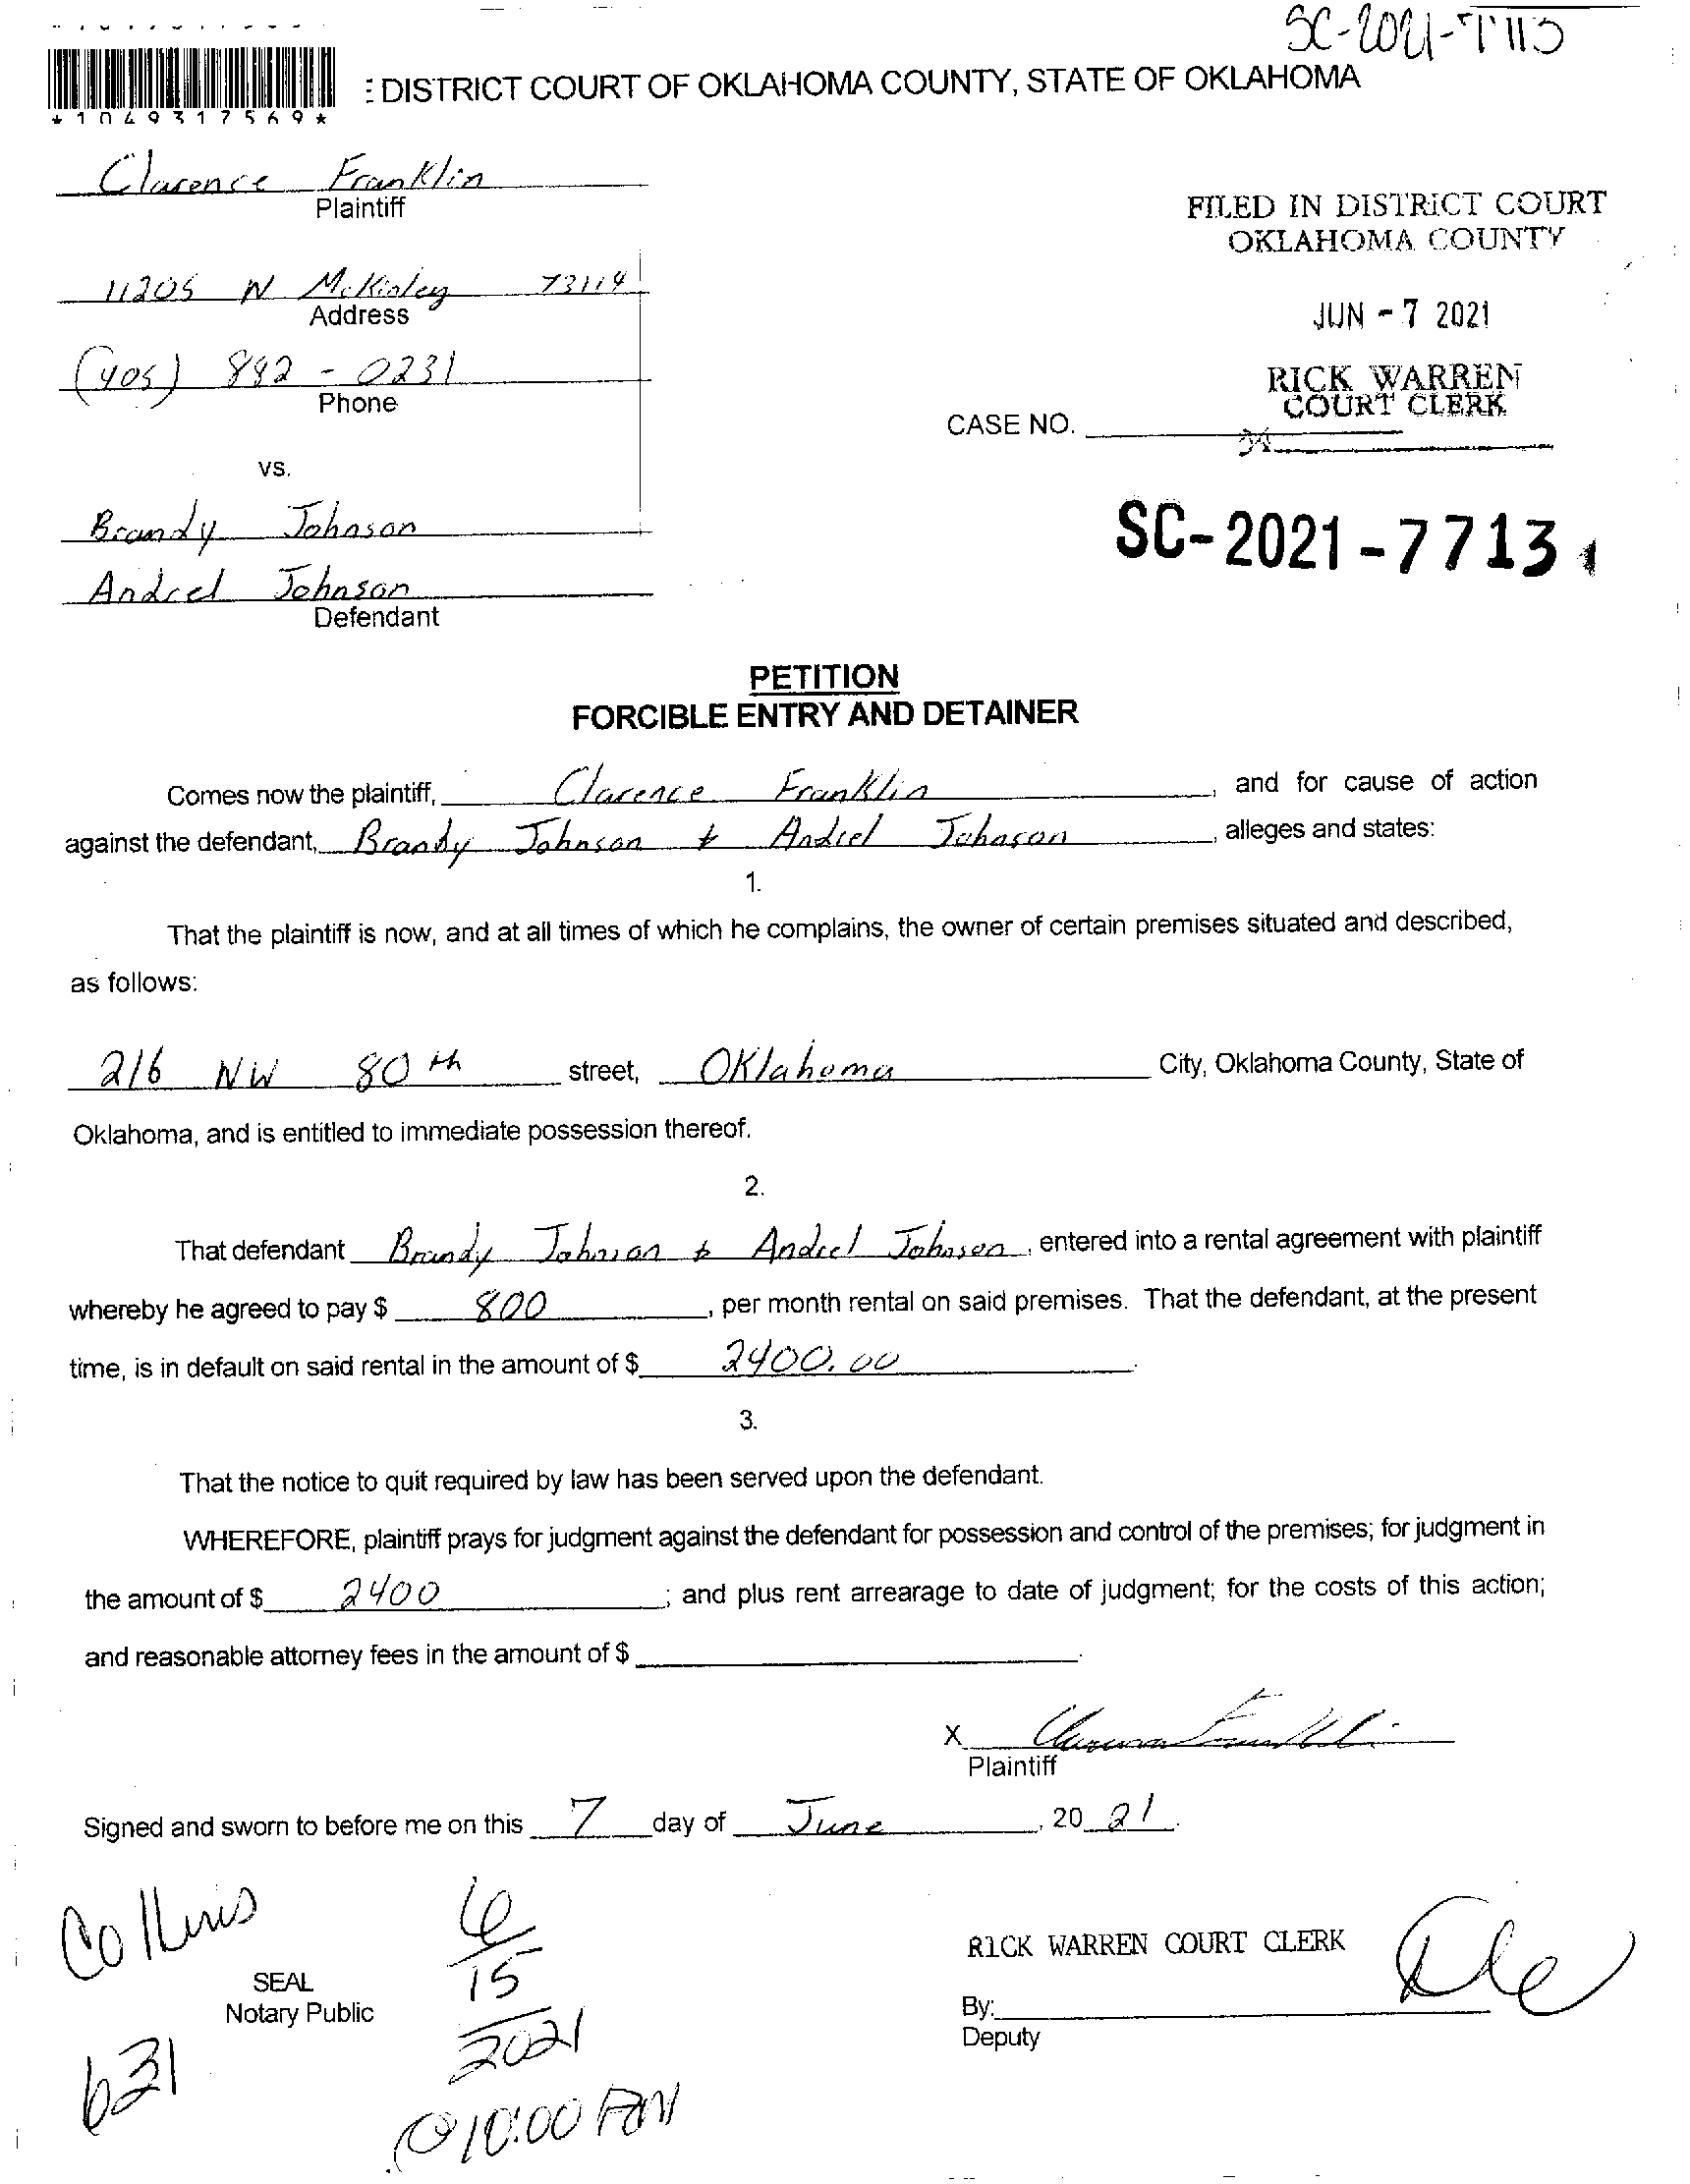 SC-2021-7713
: DISTRICT COURT OF OKLAHOMA COUNTY, STATE OF OKLAHOMA
*1049317569*
Clarence Franklin
Plaintiff
11205 N McKinley 73114
Address
(405) 842-0231
Phone
FILED IN DISTRICT COURT
OKLAHOMA COUNTY
JUN - 7 2021
RICK WARREN
COURT CLERK
CASE NO.
vs.
Brandy Johnson
Andrel Johnson
Defendant
SC-2021-7713
PETITION
FORCIBLE ENTRY AND DETAINER
Comes now the plaintiff, Clarence Franklin, and for cause of action
against the defendant, Brandy Johnson & Andrel Johnson, alleges and states:
1.
That the plaintiff is now, and at all times of which he complains, the owner of certain premises situated and described,
as follows:
216 NW 80th street, Oklahoma City, Oklahoma County, State of
Oklahoma, and is entitled to immediate possession thereof.
2.
That defendant Brandy Johnson & Andrel Johnson, entered into a rental agreement with plaintiff
whereby he agreed to pay $ 800, per month rental on said premises. That the defendant, at the present
time, is in default on said rental in the amount of $ 2400.00.
3.
That the notice to quit required by law has been served upon the defendant.
WHEREFORE, plaintiff prays for judgment against the defendant for possession and control of the premises; for judgment in
the amount of $ 2400; and plus rent arrearage to date of judgment; for the costs of this action;
and reasonable attorney fees in the amount of $ .
X Clarence Franklin
Plaintiff
Signed and sworn to before me on this 7 day of June, 20 21.
Collins
6/15/2021
SEAL
Notary Public
RICK WARREN COURT CLERK
By:
Deputy
631
@10:00 AM